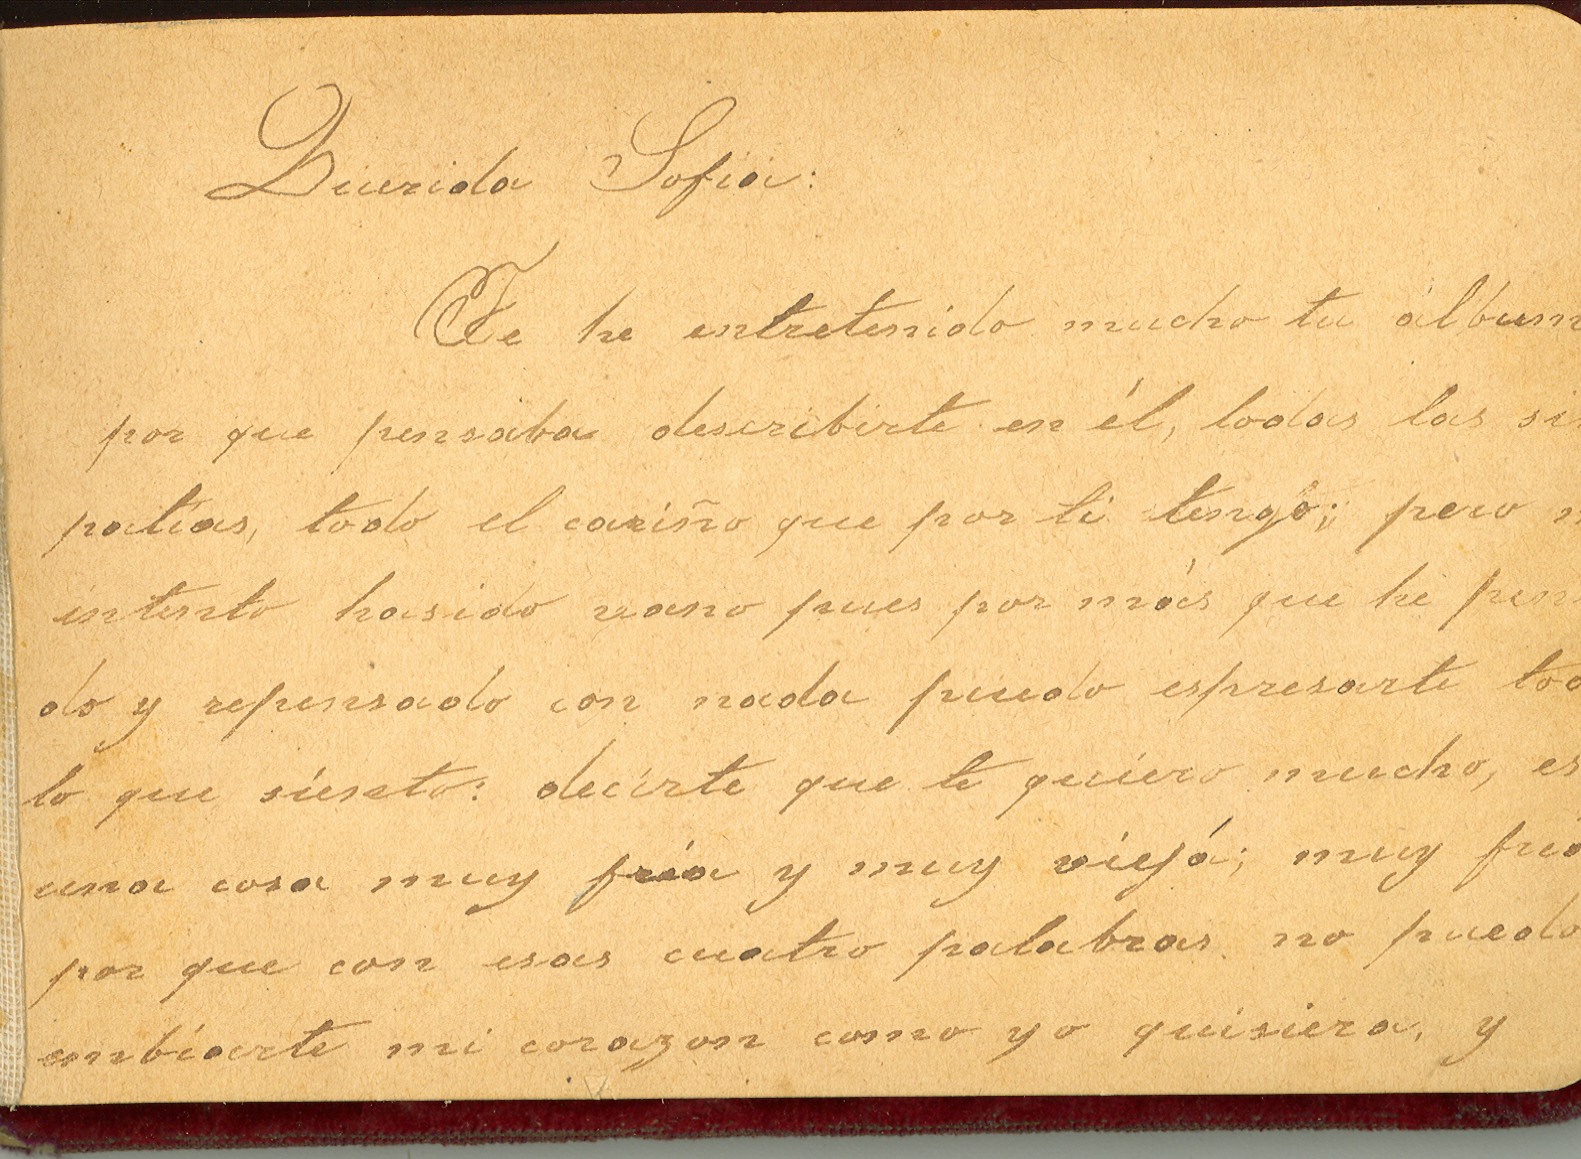 Querida Sofia:
Te he entretenido mucho tu álbum
por que pensaba describirte en él, todas las sim
patías, todo el cariño que por ti tengo; pero
intento hasido vano pues por más que he pensa
do y repensado con nada puedo espresarte todo
lo que siento: decirte que te quiero mucho, es
una cosa muy fría y muy vieja; muy fría
por que con esas cuatro palabras no puedo
embiarte mi corazon como yo quisiera, y